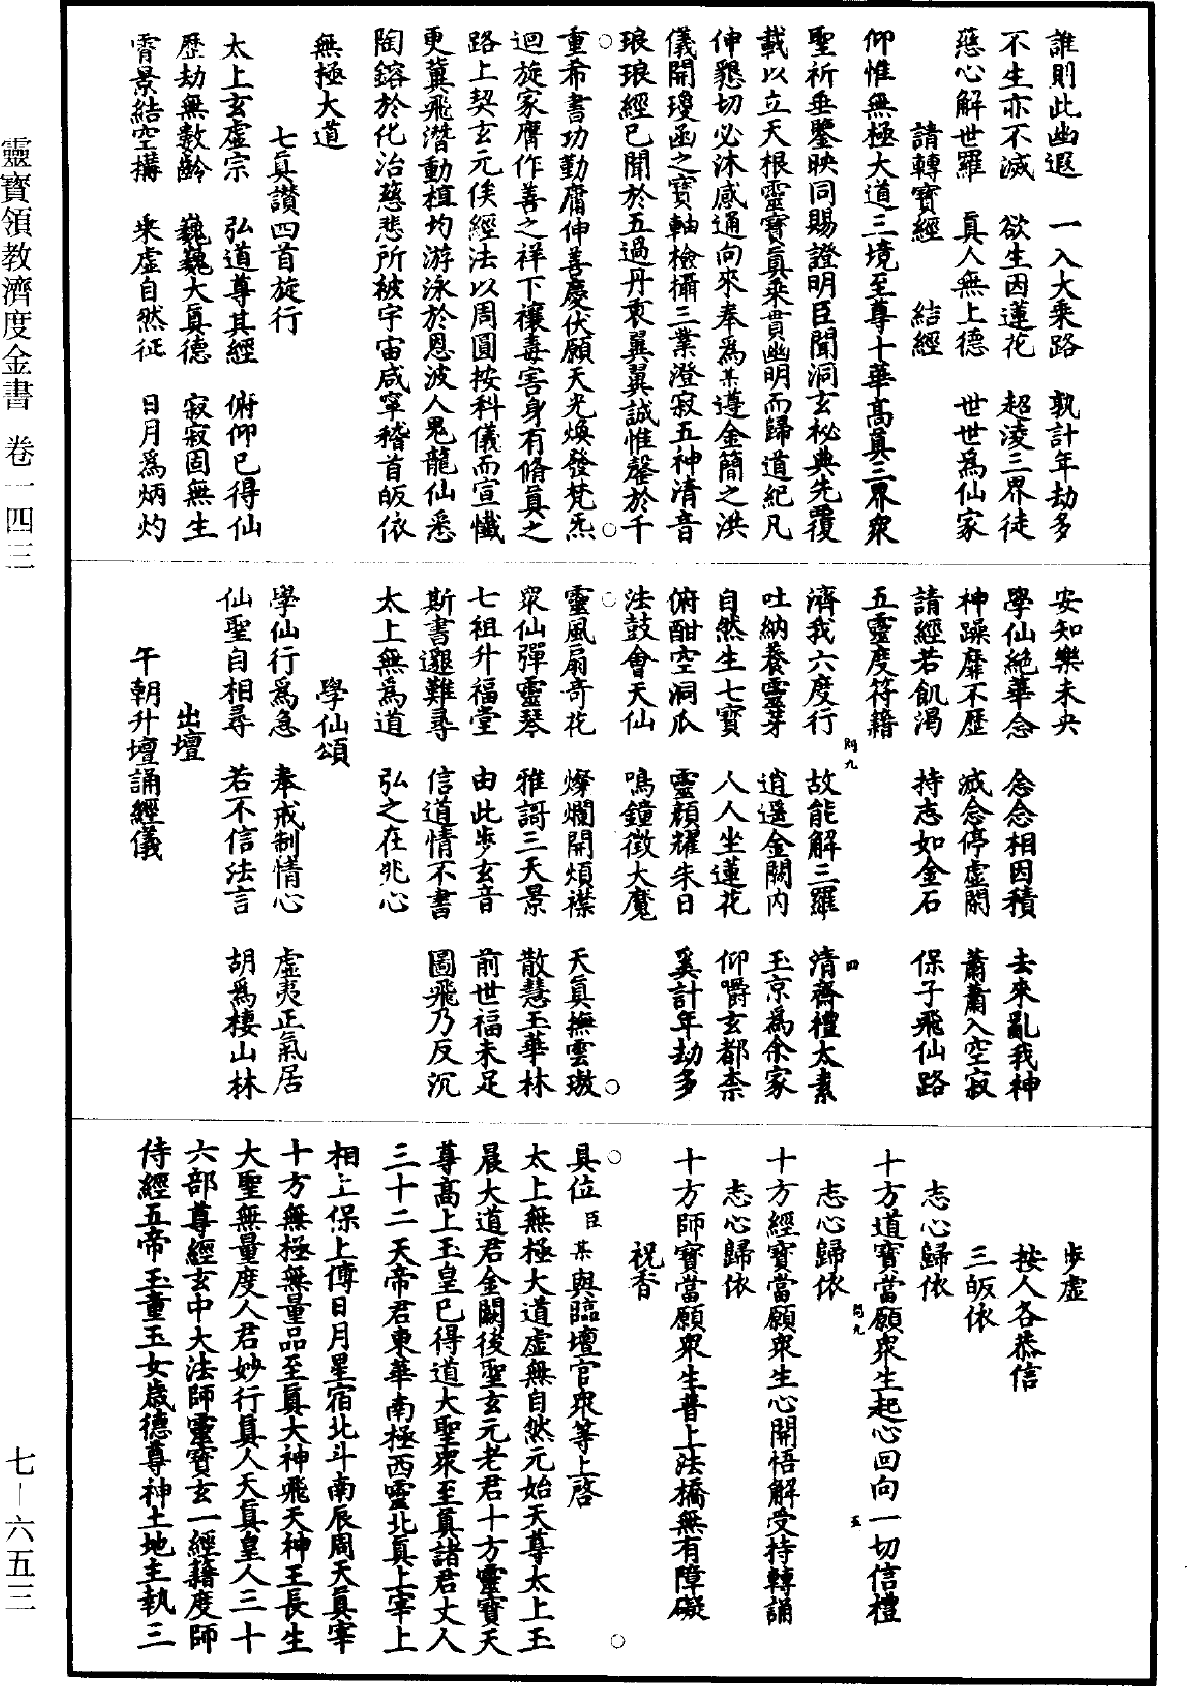 誰則此幽遐　一入大乘路　孰計年劫多
不生亦不滅　欲生因蓮花　超淩三界徒
慈心解世羅　真人無上德　世世為仙家
請轉寶經　結經
仰惟無極大道三境至尊十華高真三界衆
聖祈垂鑒映同賜證明臣聞洞玄祕典先覆
載以立天根靈寶真乘貫幽明而歸道紀凡
伸懇切必沐感通向來奉為某遵金簡之洪
儀開瓊函之寶軸檢攝三業澄寂五神清音
琅琅經已聞於五過丹衷翼翼誠惟罄於千
重希書功勤庸伸善慶伏願天光煥發梵炁
迴旋家膺作善之祥下禳毒害身有脩真之
路上契玄元俟經法以周圓按科儀而宣懺
更冀飛潛動植均游泳於恩波人鬼龍仙悉
陶鎔於化治慈悲所被宇宙咸寧稽首皈依
無極大道
七真讃四首旋行
太上玄虛宗　弘道尊其經　俯仰已得仙
歷劫無數齡　巍巍大真德　寂寂固無生
霄景結空搆　乘虛自然征　日月為炳灼
安知樂未央
學仙絶華念　念念相因積　去來亂我神
神躁靡不歷　滅念停虛閑　蕭蕭入空寂
請經若飢渴　持志如金石　保子飛仙路
五靈度符籍
濟我六度行　故能解三羅　清齋禮太素
吐納養靈芽　逍遥金闕内　玉京為余家
自然生七寳　人人坐蓮花　仰嚼玄都柰
俯酣空洞瓜　靈顔耀朱日　奚計年劫多
法鼓會天仙　鳴鐘徵大魔
靈風扇奇花　燦爛開煩襟　天真撫雲璈
衆仙彈靈琴　雅謌三天景　散慧玉華林
七祖升福堂　由此步玄音　前世福未足
斯書邈難尋　信道情不書　圖飛乃反沉
太上無為道　弘之在兆心
學仙頌
學仙行為急　奉戒制情心　虛夷正氣居
仙聖自相尋　若不信法言　胡為棲山林
出壇
午朝升壇誦經儀
步虛
按人各恭信
三皈依
志心歸依
十方道寶當願衆生起心回向一切信禮
志心歸依
十方經寶當願衆生心開悟解受持轉誦
志心歸依
十方師寶當願衆生普上法橋無有障礙
祝香
具位臣某與臨壇官衆等上啓
太上無極大道虛無自然元始天尊太上玉
晨大道君金闕後聖玄元老君十方靈寶天
尊高上玉皇已得道大聖衆至真諸君丈人
三十二天帝君東華南極西靈北真上宰上
相上保上傅日月星宿北斗南辰周天真宰
十方無極無量品至真大神飛天神王長生
大聖無量度人君妙行真人天真皇人三十
六部尊經玄中大法師靈寶玄一經籍度師
侍經五帝玉童玉女歲德尊神土地主執三
靈寶領教濟度金書　卷一四三
七—六五三